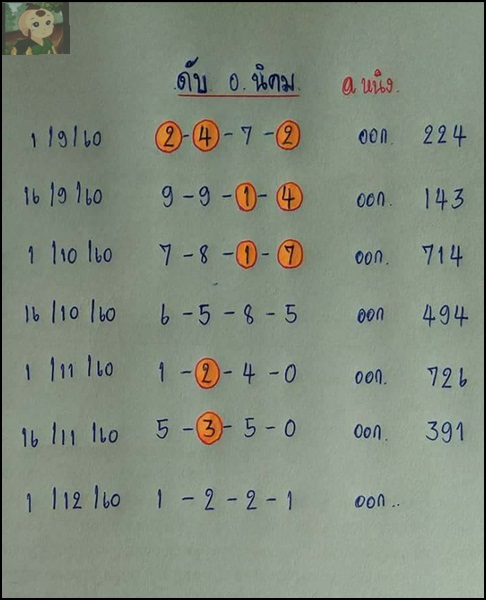 ดับ อ. นิคม. a หนิง.
1/9/60 2-4-7-2 ออก. 224
16/9/60 9-9-1-4 ออก. 143
1/10/60 7-8-1-7 ออก. 714
16/10/60 6-5-8-5 ออก 494
1/11/60 1-2-4-0 ออก. 726
16/11/60 5-3-5-0 ออก. 391
1/12/60 1-2-2-1 ออก..